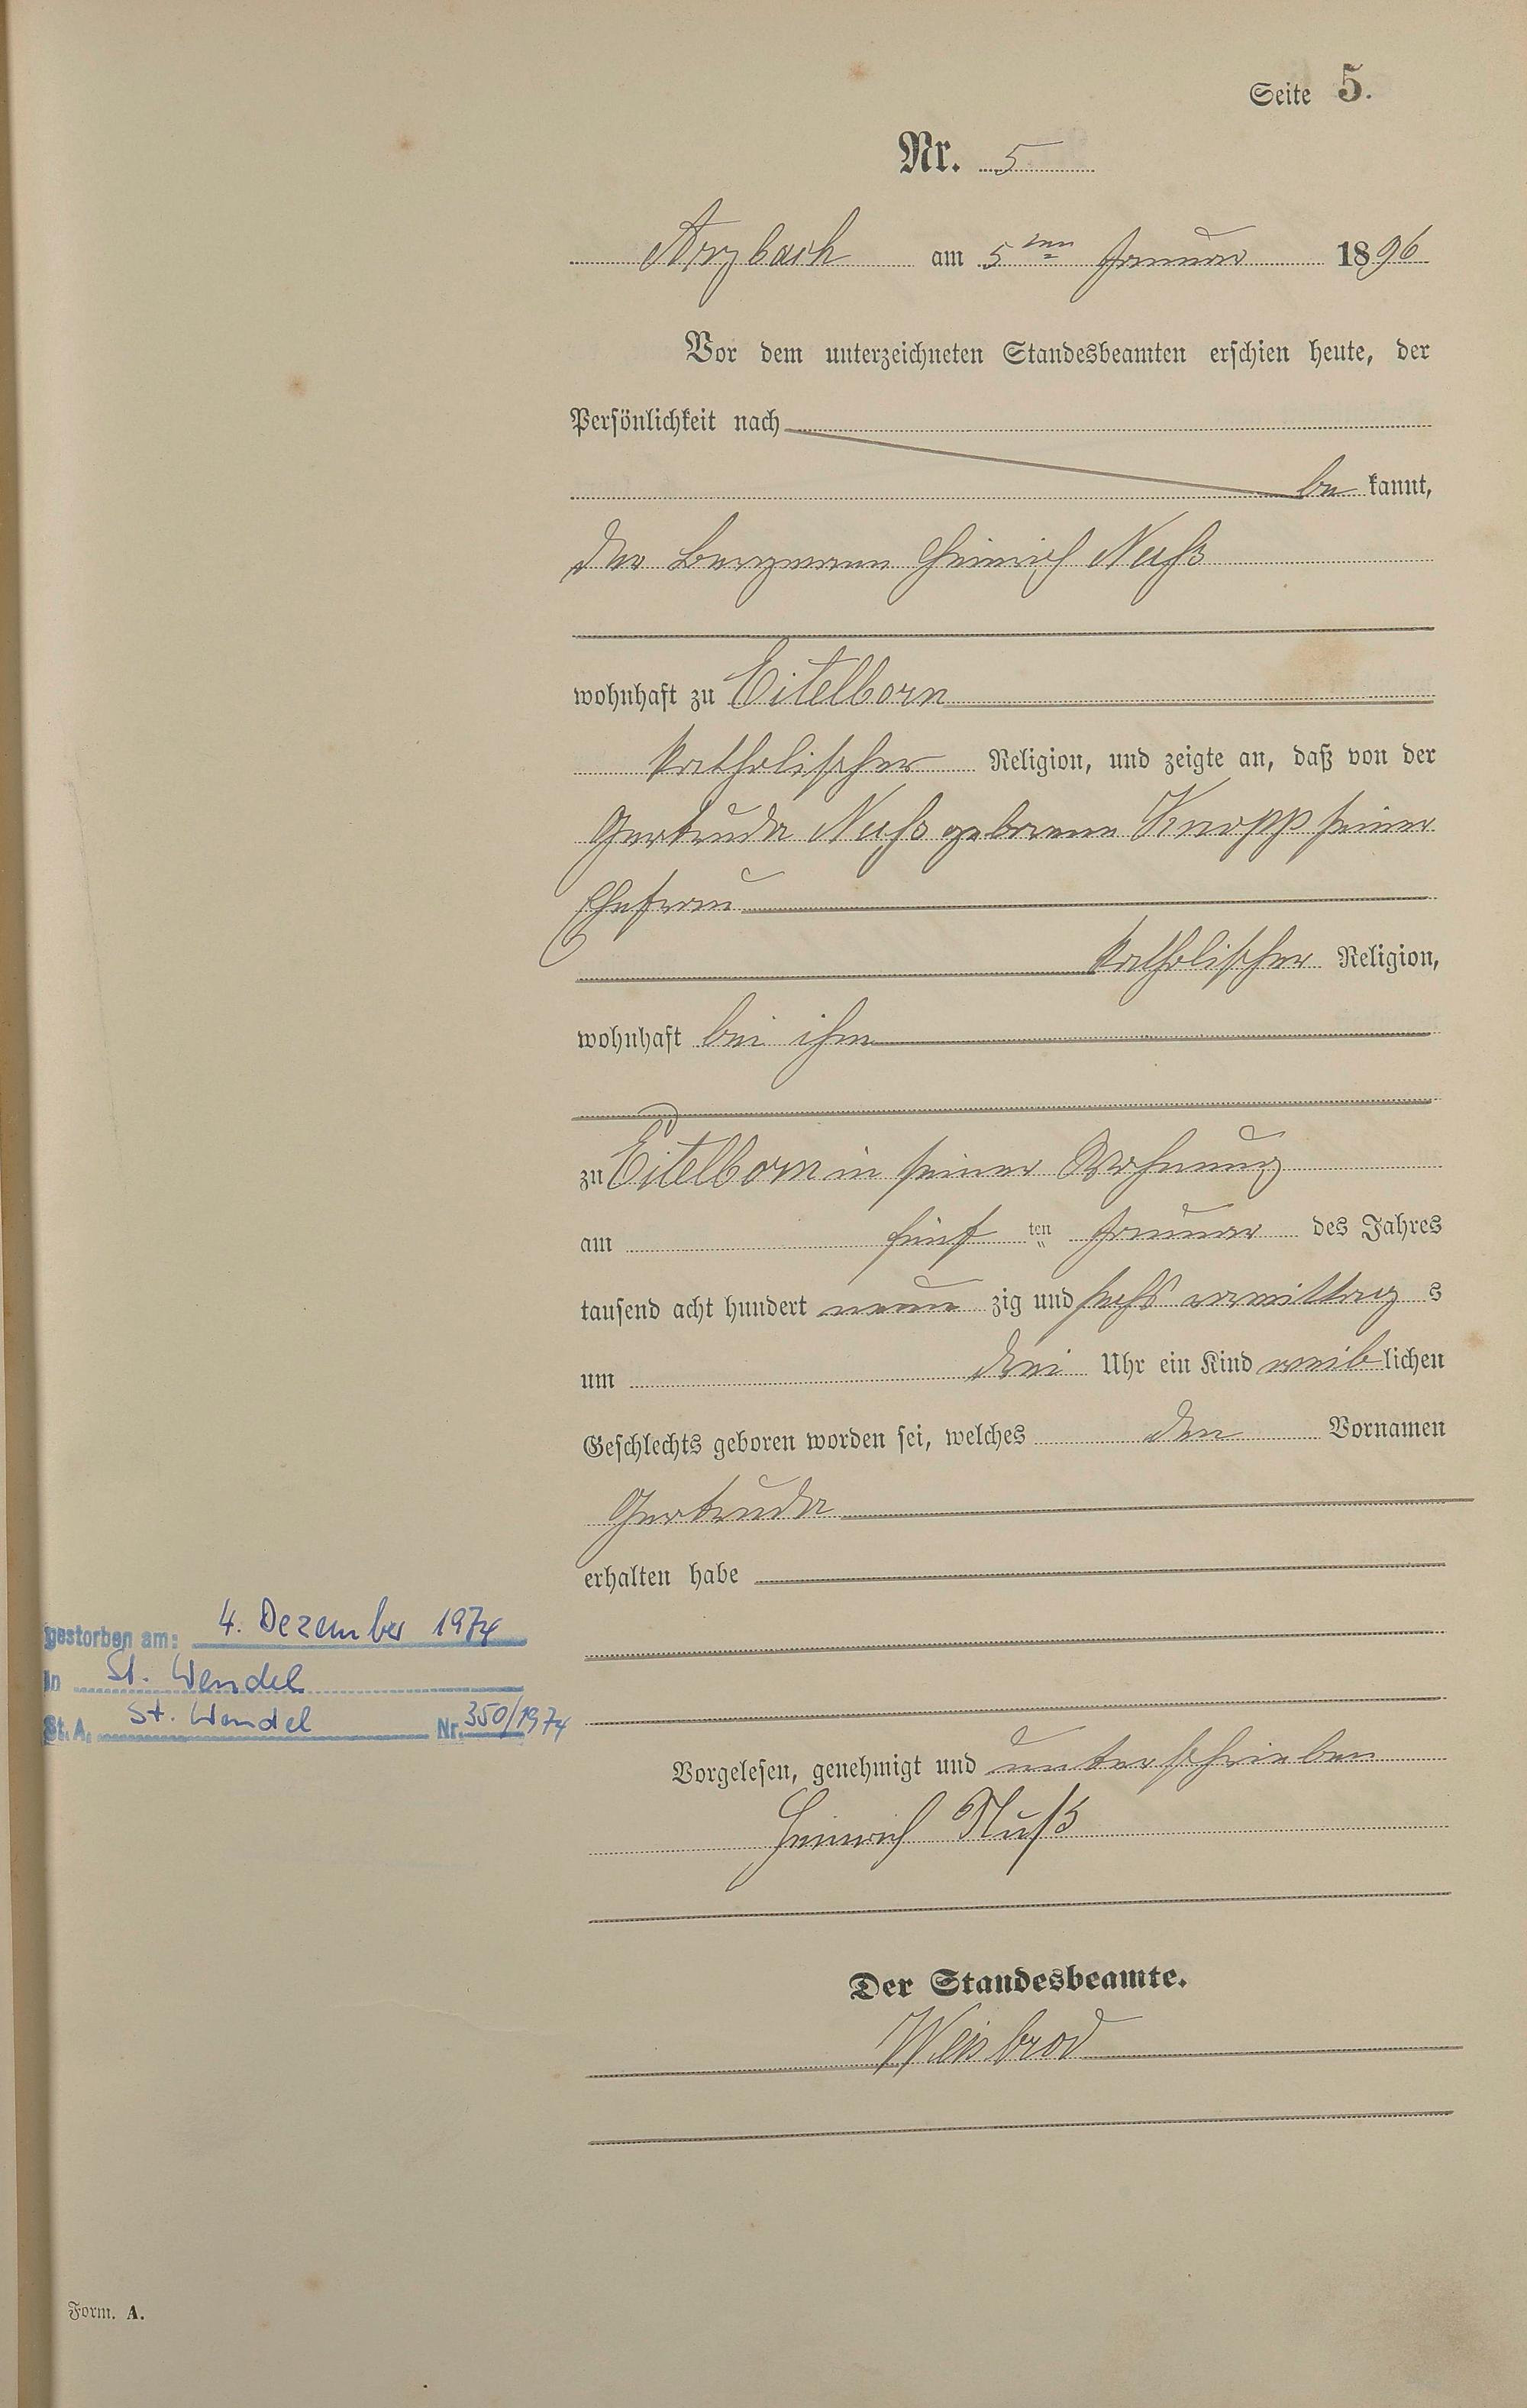 Seite 5.
Nr. 5
Arzbach am 5ten Januar 1896
Vor dem unterzeichneten Standesbeamten erschien heute, der
Persönlichkeit nach
be kannt,
der Bergmann Heinrich Nuß
wohnhaft zu Eitelborn
katholischer Religion, und zeigte an, daß von der
Gertrude Nuß geborene Knopp seiner
Ehefrau
katholischer Religion,
wohnhaft bei ihm
zu Eitelborn in seiner Wohnung
am fünf ten Januar des Jahres
tausend acht hundert neun zig und sechs vormittag s
um drei Uhr ein Kind weiblichen
Geschlechts geboren worden sei, welches den Vornamen
Gertrude
erhalten habe
gestorben am: 4. Dezember 1974
in St. Wendel
St. A. St. Wendel Nr. 350/1974
Vorgelesen, genehmigt und unterschrieben
Heinrich Nuß
Der Standesbeamte.
Weisbrod
Form. A.